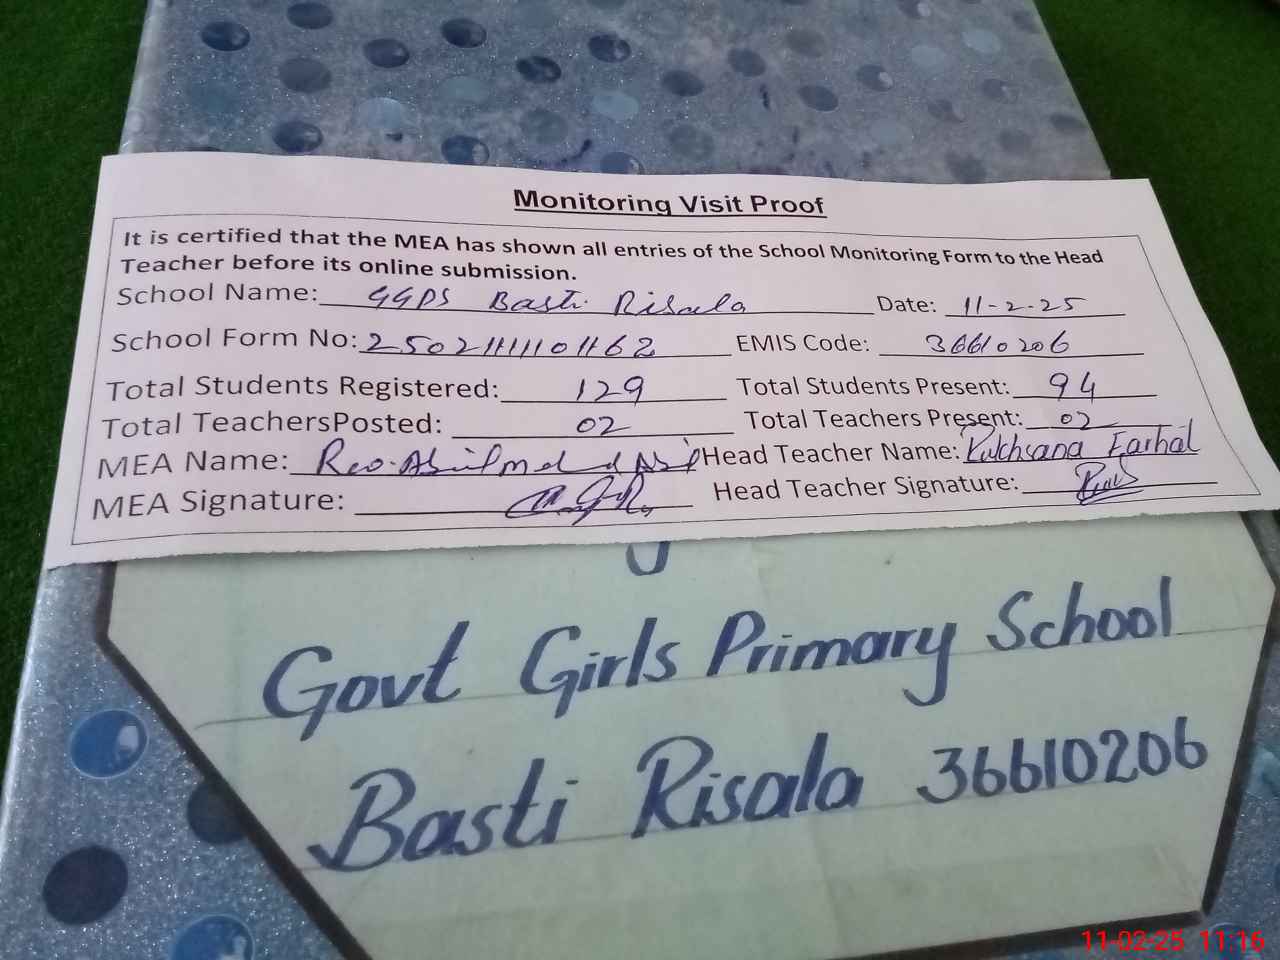 Monitoring Visit Proof
It is certified that the MEA has shown all entries of the School Monitoring Form to the Head
Teacher before its online submission.
School Name: GGPS Basti Risala Date: 11-2-25
School Form No: EMIS Code: 36610206
Total Students Registered: 129 Total Students Present: 94
Total TeachersPosted: 02 Total Teachers Present: 02
MEA Name: Head Teacher Name: Rukhsana
MEA Signature: Head Teacher Signature:
Govt Girls Primary School
Basti Risala 36610206
11-02-25 11:16